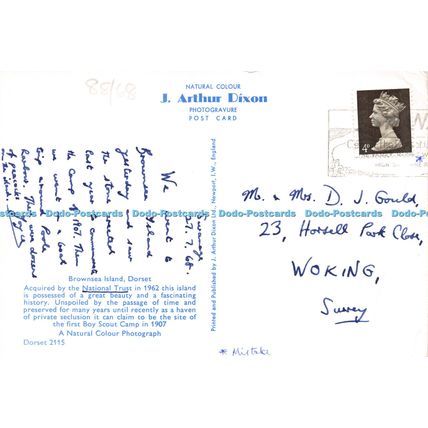 88/68
NATURAL COLOUR
J. Arthur Dixon
PHOTOGRAVURE
POST CARD
4D
Swanage
27.7.68.
We went to
Brownsea Island
yesterday and saw
the stone erected
last year to commemorate
the Camp of 1907. Then
we went a boat
trip around Poole
Harbour. There were dozens
of peacocks
on the island. Joyce
Mr. & Mrs. D. J. Gould,
23, Horsell Park Close,
WOKING,
Surrey
* Mistake
Brownsea Island, Dorset
Acquired by the National Trust in 1962 this island
is possessed of a great beauty and a fascinating
history. Unspoiled by the passage of time and
preserved for many years until recently as a haven
of private seclusion it can claim to be the site of
the first Boy Scout Camp in 1907
A Natural Colour Photograph
Dorset 2115
Printed and Published by J. Arthur Dixon Ltd., Newport, I.W., England
Dodo-Postcards Dodo-Postcards Dodo-Postcards Dodo-Postcards Dodo-Postcards